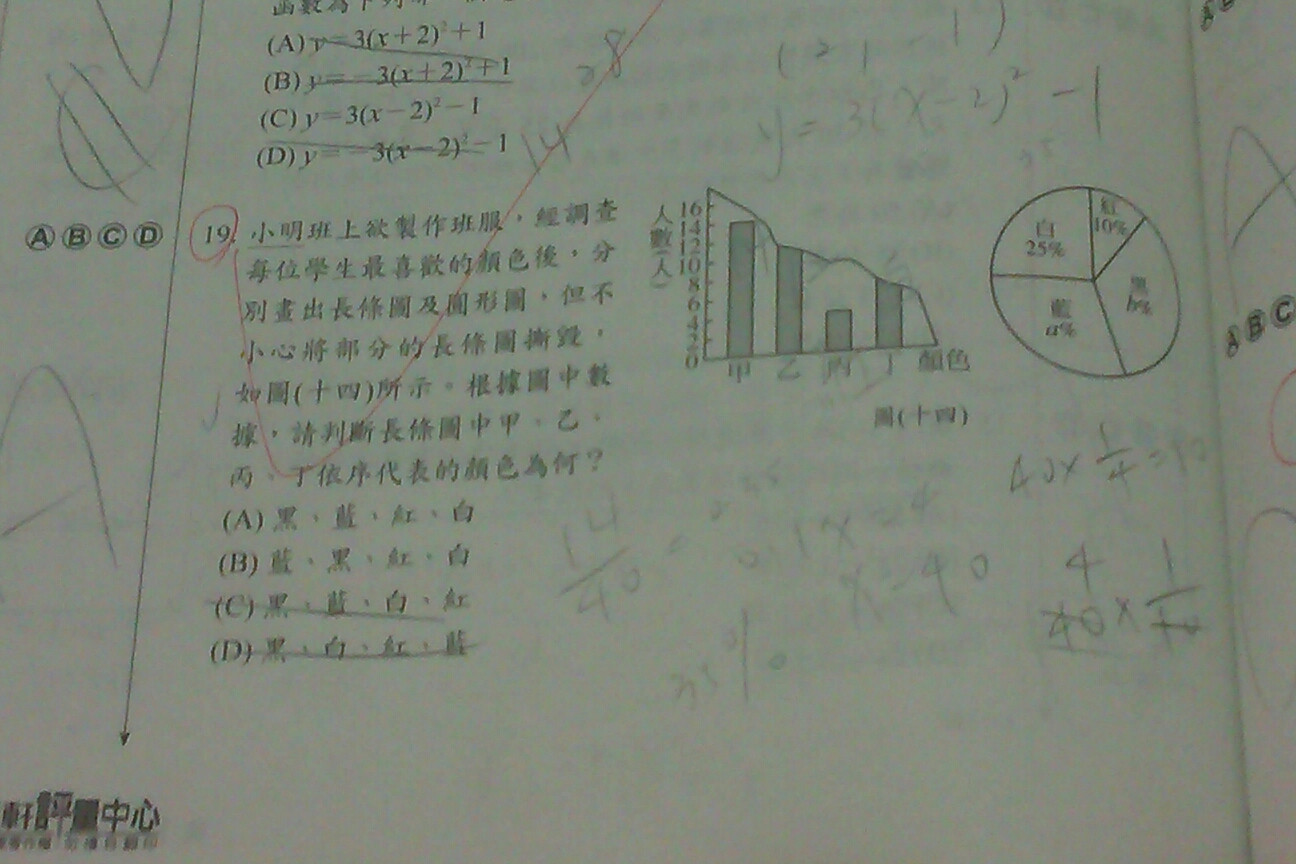 (A) y=3(x+2)²+1
(B) y=-3(x+2)²+1
(C) y=3(x-2)²-1
(D) y=-3(x-2)²-1
28
14
y=3(x-2)²-1
Ⓐ Ⓑ Ⓒ Ⓓ
19. 小明班上欲製作班服，經調查
每位學生最喜歡的顏色後，分
別畫出長條圖及圓形圖，但不
小心將部分的長條圖撕毀，
如圖(十四)所示。根據圖中數
據，請判斷長條圖中甲、乙、
丙、丁依序代表的顏色為何？
(A) 黑、藍、紅、白
(B) 藍、黑、紅、白
(C) 黑、藍、白、紅
(D) 黑、白、紅、藍
人數(人)
16
14
12
10
8
6
4
2
0
甲 乙 丙 丁 顏色
白
25%
紅
10%
黑
b%
藍
a%
圖(十四)
40×1/4=10
14/40=
0.1x=4
x=40
35%
4
40×1/10
軒評量中心